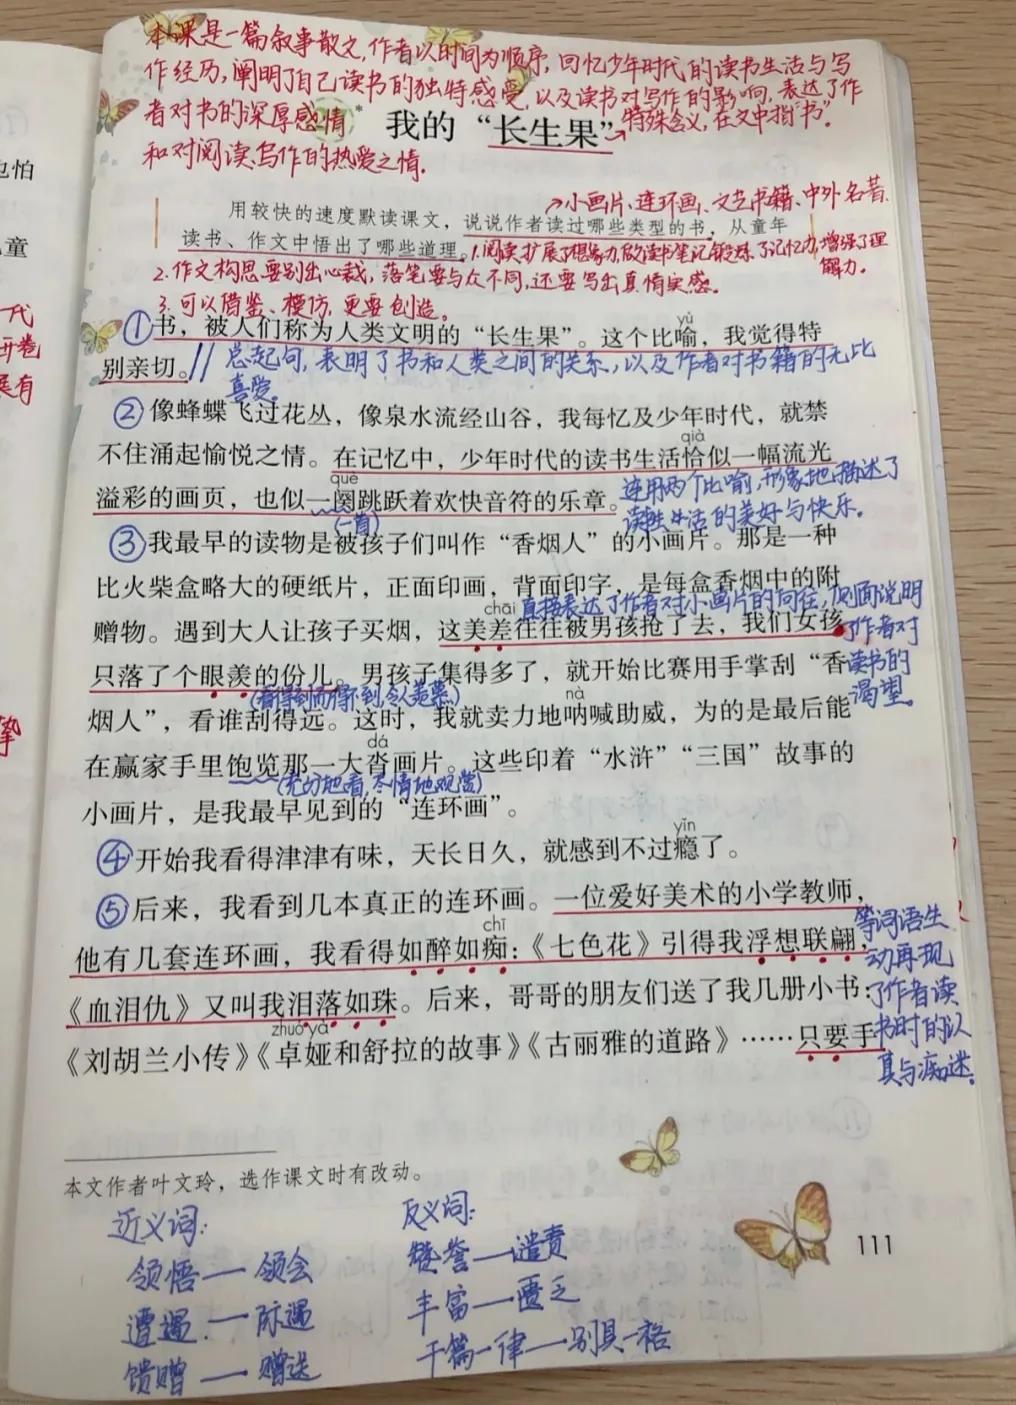 本课是一篇叙事散文,作者以时间为顺序,回忆少年时代的读书生活与写
作经历,阐明了自己读书的独特感受,以及读书对写作的影响,表达了作
者对书的深厚感情
和对阅读、写作的热爱之情.
*
我的“长生果”
→特殊含义,在文中指“书”.
→小画片、连环画、文艺书籍、中外名著.
用较快的速度默读课文,说说作者读过哪些类型的书,从童年
读书、作文中悟出了哪些道理。
1.阅读,扩展了想象力,做读书笔记,锻炼了记忆力,增强了理
解力.
2.作文构思要别出心裁,落笔要与众不同,还要写出真情实感。
3.可以借鉴、模仿,更要创造。
yù
①书,被人们称为人类文明的“长生果”。这个比喻,我觉得特
别亲切。
//总起句,表明了书和人类之间的关系,以及作者对书籍的无比
喜爱。
②像蜂蝶飞过花丛,像泉水流经山谷,我每忆及少年时代,就禁
qià
不住涌起愉悦之情。在记忆中,少年时代的读书生活恰似一幅流光
què
溢彩的画页,也似一阕跳跃着欢快音符的乐章。
(一首)
连用两个比喻,形象地描述了
读书生活的美好与快乐。
③我最早的读物是被孩子们叫作“香烟人”的小画片。那是一种
比火柴盒略大的硬纸片,正面印画,背面印字,是每盒香烟中的附
chāi
直接表达了作者对小画片的向往,侧面说明
了作者对
读书的
渴望。
赠物。遇到大人让孩子买烟,这美差往往被男孩抢了去,我们女孩
只落了个眼羡的份儿。男孩子集得多了,就开始比赛用手掌刮“香
(看得到而得不到,令人羡慕)
nà
烟人”,看谁刮得远。这时,我就卖力地呐喊助威,为的是最后能
dá
在赢家手里饱览那一大沓画片。这些印着“水浒”“三国”故事的
(充分地看,尽情地观赏)
小画片,是我最早见到的“连环画”。
yǐn
④开始我看得津津有味,天长日久,就感到不过瘾了。
⑤后来,我看到几本真正的连环画。一位爱好美术的小学教师,
chī
他有几套连环画,我看得如醉如痴:《七色花》引得我浮想联翩,
《血泪仇》又叫我泪落如珠。后来,哥哥的朋友们送了我几册小书:
zhuó yà
《刘胡兰小传》《卓娅和舒拉的故事》《古丽雅的道路》……只要手
等词语生
动再现
了作者读
书时的认
真与痴迷。
本文作者叶文玲,选作课文时有改动。
近义词:
领悟——领会
遭遇——际遇
馈赠——赠送
反义词:
赞誉——谴责
丰富——匮乏
千篇一律——别具一格
111
也怕
童
一代
开卷
展有
挚